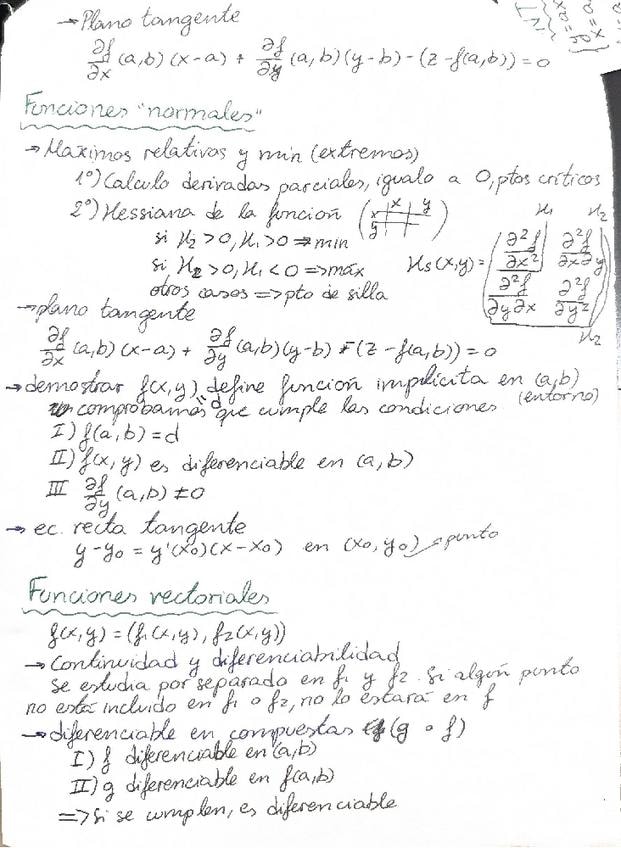 →Plano tangente
∂f/∂x (a,b)(x-a) + ∂f/∂y (a,b)(y-b)-(z-f(a,b))=0
Funciones "normales"
→Maximos relativos y min (extremos)
1º) Calculo derivadas parciales, igualo a 0, ptos críticos
2º) Hessiana de la función ( x y x y )
si H2>0, H1>0 ⇒ min
si, H2>0, H1<0 ⇒ máx
otros casos ⇒ pto de silla
H1 H2
Hs(x,y)= ( ∂²f/∂x² ∂²f/∂x∂y
∂²f/∂y∂x ∂²f/∂y² )
H2
→plano tangente
∂f/∂x (a,b)(x-a) + ∂f/∂y (a,b)(y-b) - (z-f(a,b))=0
→demostrar f(x,y)=d define función implícita en (a,b)
comprobamos que cumple las condiciones (entorno)
I) f(a,b)=d
II) f(x,y) es diferenciable en (a,b)
III ∂f/∂y (a,b) ≠0
→ ec. recta tangente
y-y0 = y'(x0)(x-x0) en (x0,y0) punto
Funciones vectoriales
f(x,y)=(f1(x,y), f2(x,y))
→ Continuidad y diferenciabilidad
se estudia por separado en f1 y f2. Si algún punto
no está incluido en f1 o f2, no lo estará en f
→diferenciable en compuestas (g ∘ f)
I) f diferenciable en (a,b)
II) g diferenciable en f(a,b)
⇒ Si se cumplen, es diferenciable